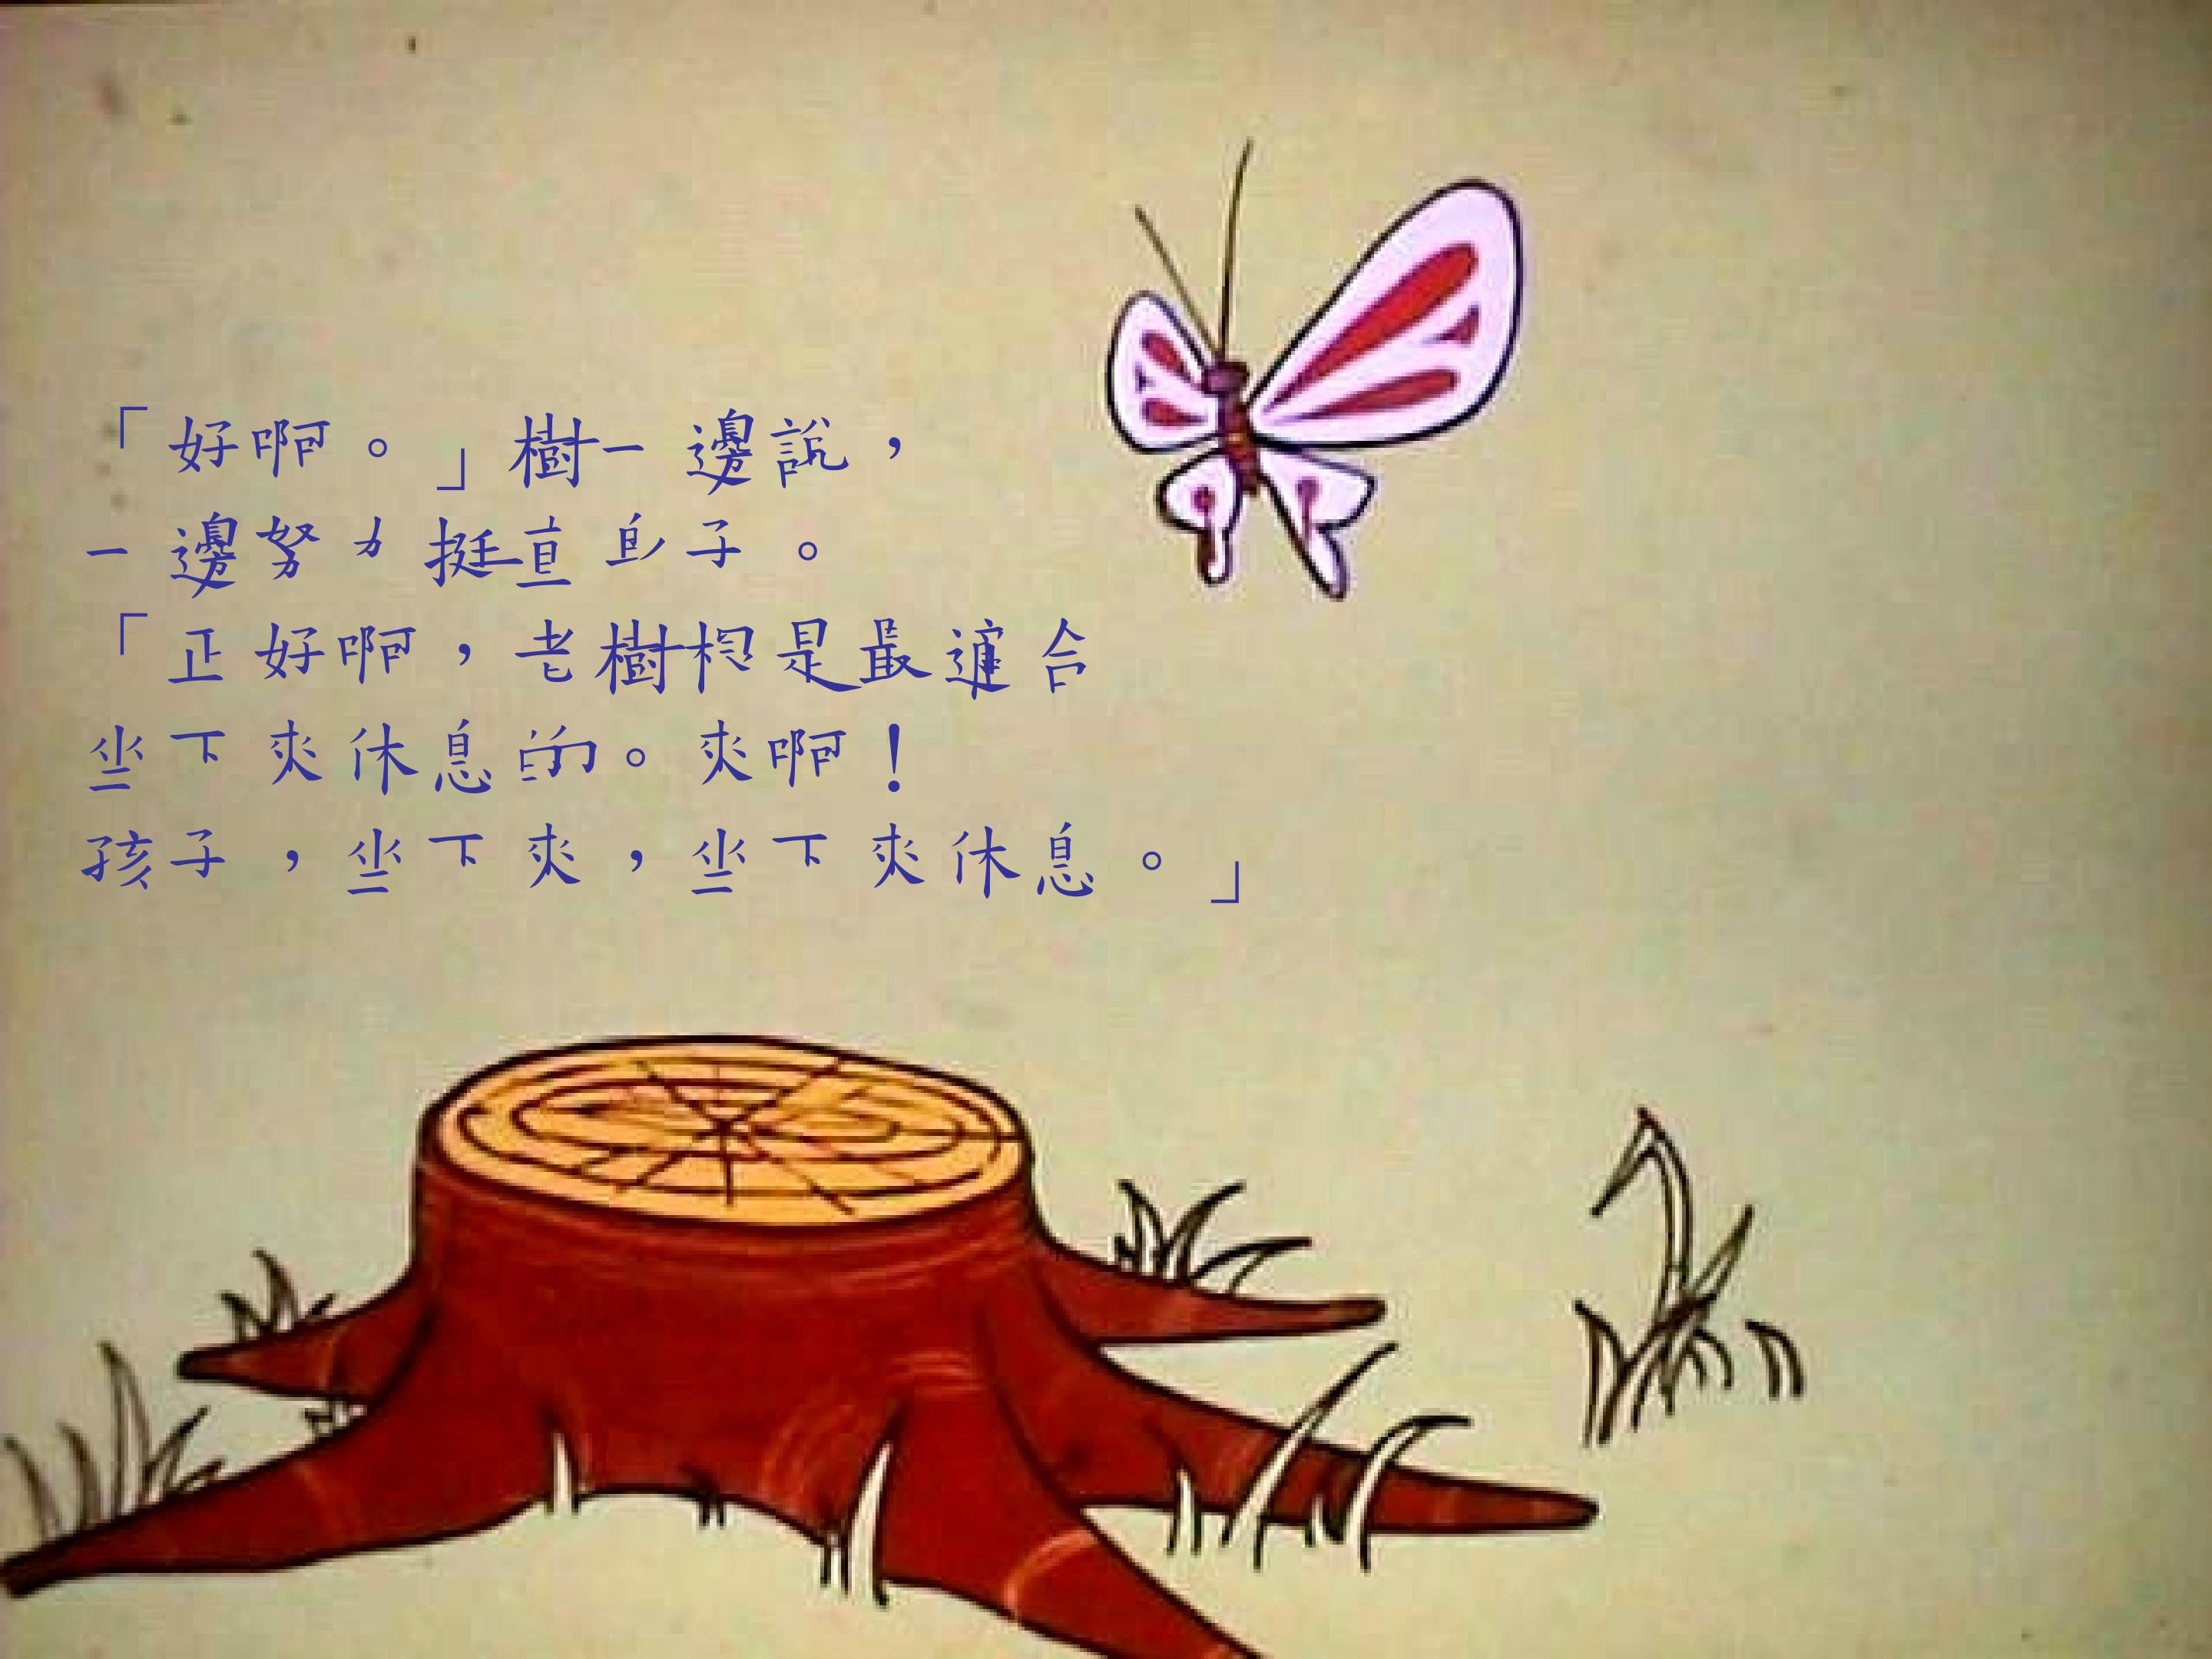 「好啊。」樹一邊說，
一邊努力挺直身子。
「正好啊，老樹根是最適合
坐下來休息的。來啊！
孩子，坐下來，坐下來休息。」